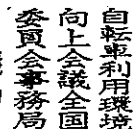 自転車利用環境
向上会議全国
委員会事務局